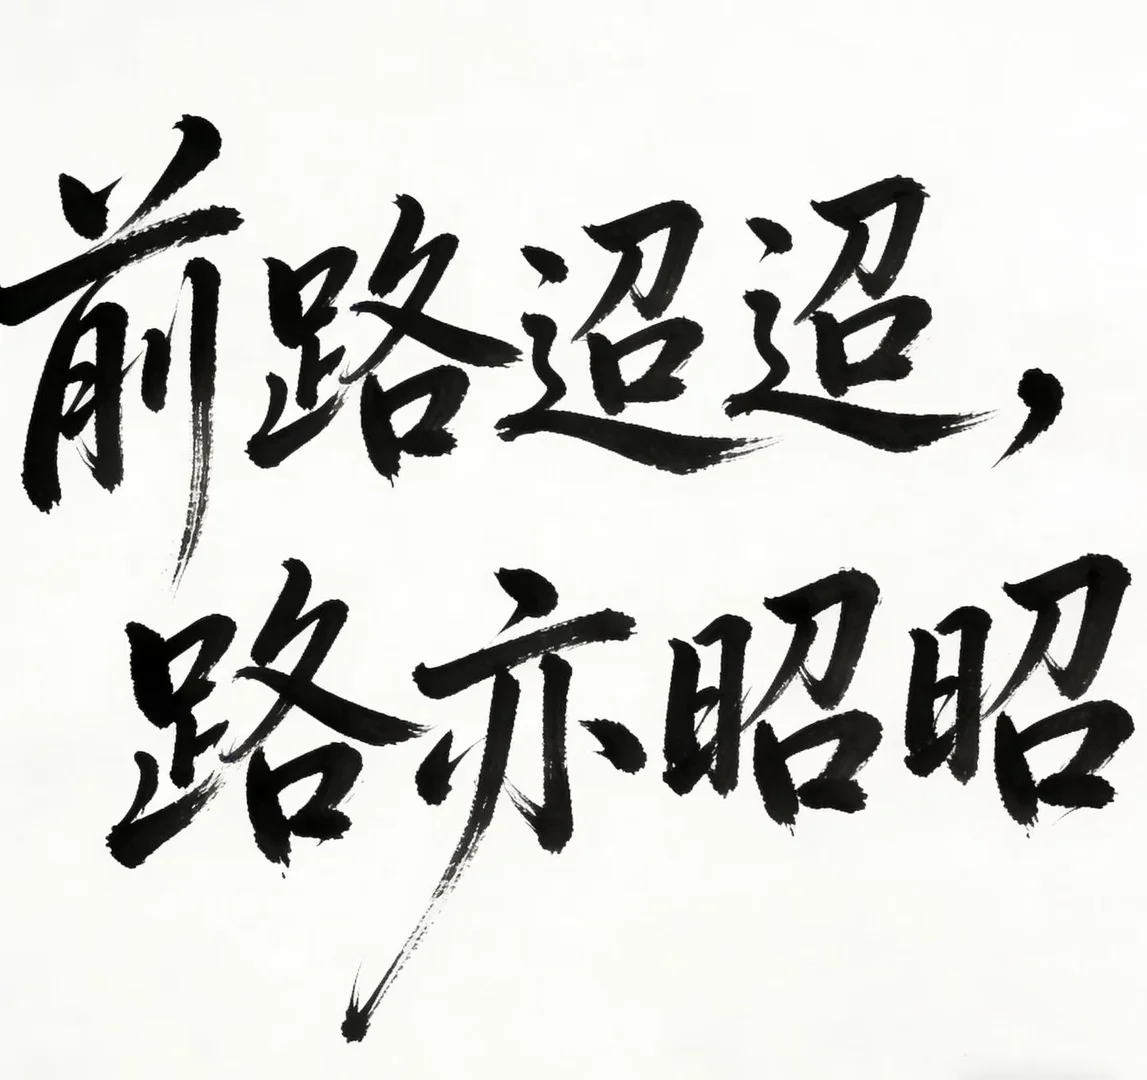 前路迢迢，
路亦昭昭